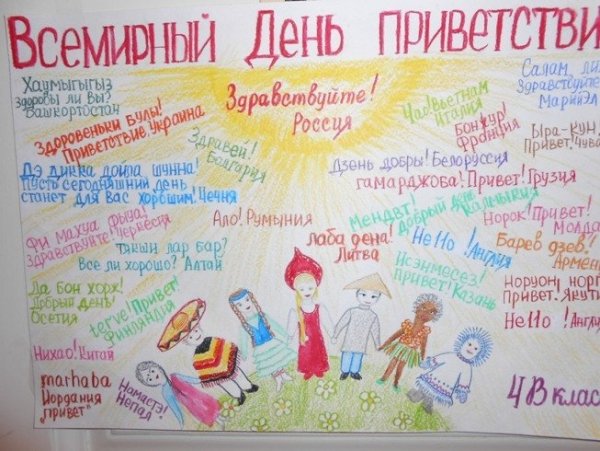 Всемирный День приветстви
Хаумыгыгыз
здоровы ли вы?
Башкортостан
Здоровеньки булы!
Приветствие Украина
Здравей!
Болгария
Здравствуйте!
Россия
Чао! Вьетнам
Италия
Бонжур!
Франция
Салам ли
Здравствуйте
Марий Эл
Ыра-кун,
Привет. Чува
Дэ дикка дойла шунна!
Пусть сегодняшний день
станет для вас хорошим! Чечня
Дзень добры! Белоруссия
гамарджоба! Привет! Грузия
Мендвт!
Добрый день
Калмыкия
Норок! Привет!
Молда
Фи махуа фыуа!
Здравствуйте! Черкесия
Ало! Румыния
лаба дена!
Литва
Hello! Англия
Барев дзев!
Армен
Тякши лар бар?
Все ли хорошо? Алтай
Исэнмесез!
привет! Казань
Норуон, норг
Привет. Якути
Ла бон хорж!
Добрый день!
Осетия
terve! Привет!
Финляндия
Hello! Англи
Нихао! Китай
marhaba
Иордания
"привет"
Намастэ!
Непал
4В клас